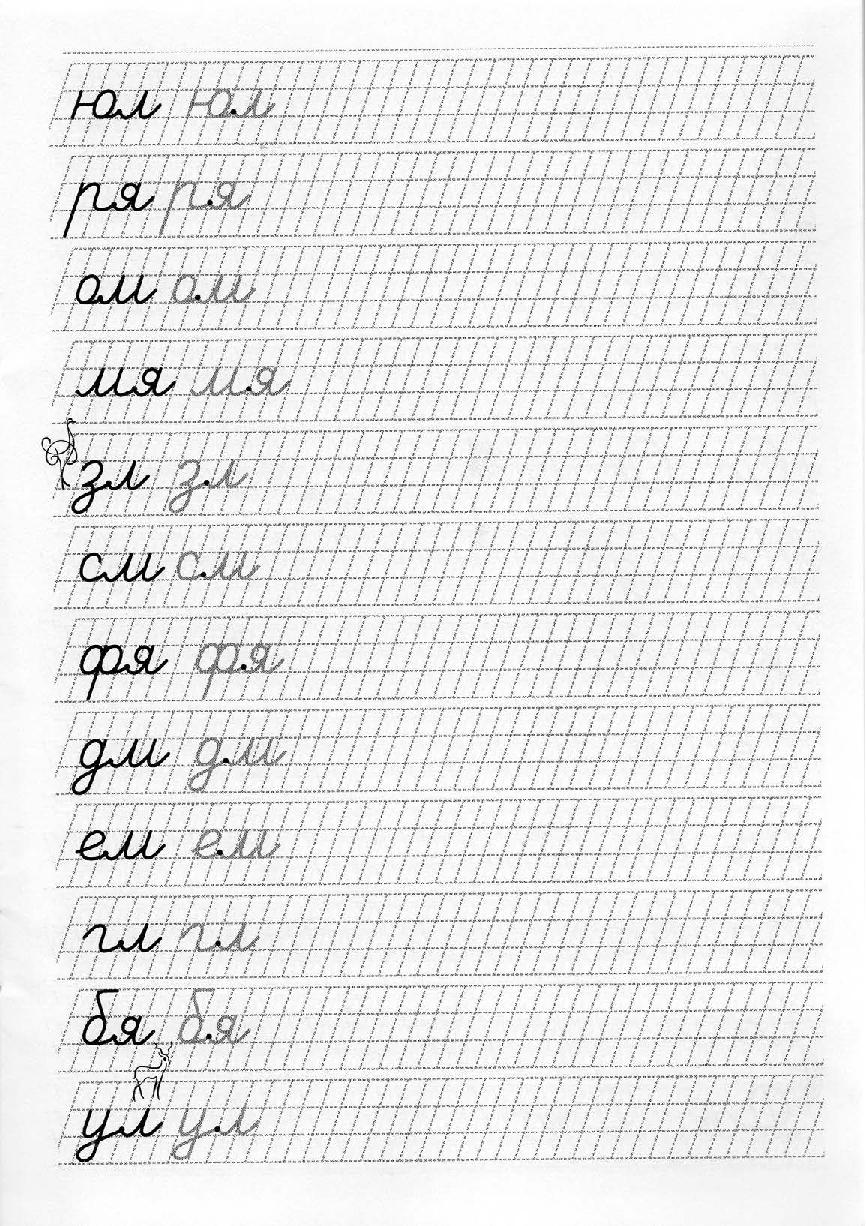 юл юл
ря ря
ом ом
мя мя
зл зл
см см
фя фя
дм дм
ем ем
гл гл
бя бя
ул ул